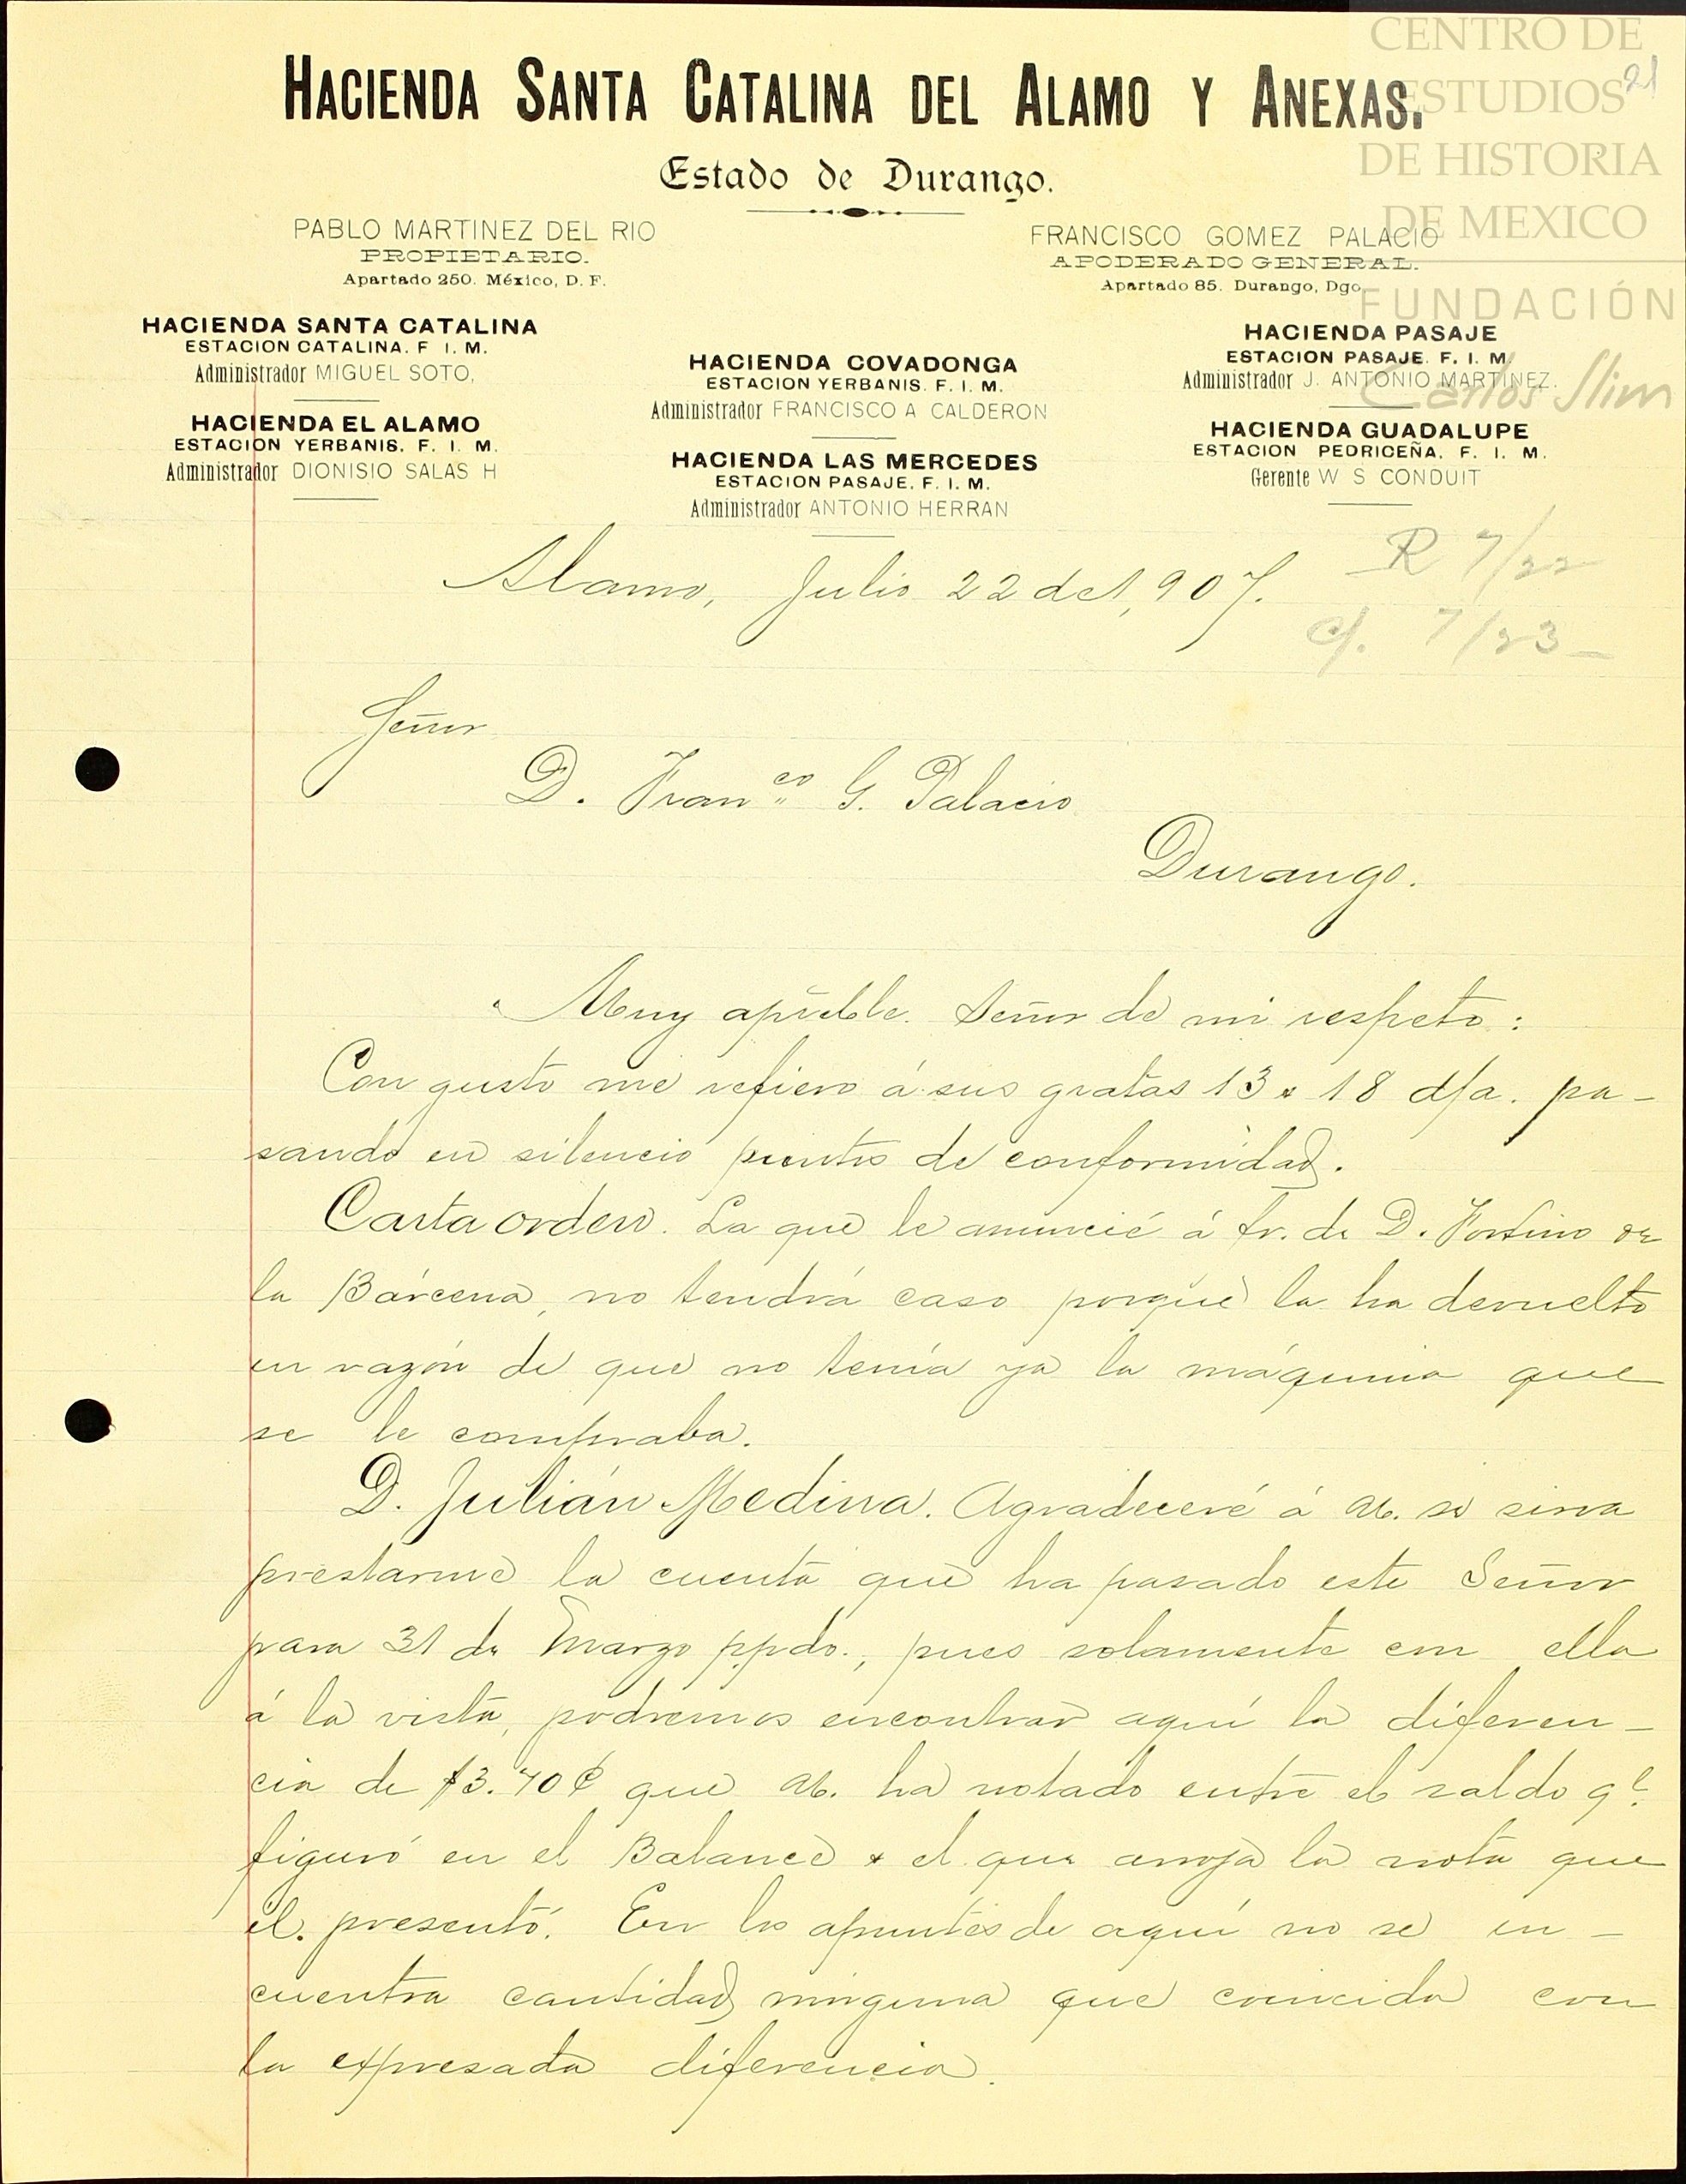 CENTRO DE
ESTUDIOS
DE HISTORIA
DE MEXICO
FUNDACIÓN
Carlos Slim
21
HACIENDA SANTA CATALINA DEL ALAMO Y ANEXAS.
Estado de Durango.
PABLO MARTINEZ DEL RIO
PROPIETARIO.
Apartado 250. México, D. F.
FRANCISCO GOMEZ PALACIO
APODERADO GENERAL.
Apartado 85. Durango, Dgo.
HACIENDA SANTA CATALINA
ESTACION CATALINA. F I. M.
Administrador MIGUEL SOTO,
HACIENDA EL ALAMO
ESTACION YERBANIS. F. I. M.
Administrador DIONISIO SALAS H
HACIENDA COVADONGA
ESTACION YERBANIS. F. I. M.
Administrador FRANCISCO A CALDERON
HACIENDA LAS MERCEDES
ESTACION PASAJE. F. I. M.
Administrador ANTONIO HERRAN
HACIENDA PASAJE
ESTACION PASAJE. F. I. M
Administrador J. ANTONIO MARTINEZ.
HACIENDA GUADALUPE
ESTACION PEDRICEÑA. F. I. M.
Gerente W S CONDUIT
R 7/22
C/. 7/23
Alamo, Julio 22 de 1,907.
Señor
D. Franco G. Palacio
Durango.
Muy apreble. Señor de mi respeto:
Con gusto me refiero á sus gratas 13 & 18 d/a. pa-
sando en silencio puntos de conformidad.
Carta orden. La que le anuncié á fv. de D. Fortino de
la Bárcena, no tendrá caso porque la ha devuelto
en razón de que no tenía ya la máquina que
se le compraba.
D. Julián Medina. Agradeceré á Ud. se sirva
prestarme la cuenta que ha pasado este Señor
para 31 de Marzo ppdo., pues solamente con ella
á la vista, podremos encontrar aquí la diferen-
cia de $3.70¢ que Ud. ha notado entre el saldo qe.
figuró en el Balance & el que arroja la nota que
él. presentó. En los apuntes de aquí no se en-
cuentra cantidad ninguna que coincida con
la expresada diferencia.